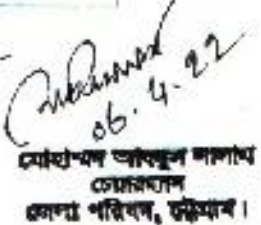 06.4.22
মোহাম্মদ আবদুল সালাম
চেয়ারম্যান
জেলা পরিষদ, চট্টগ্রাম।